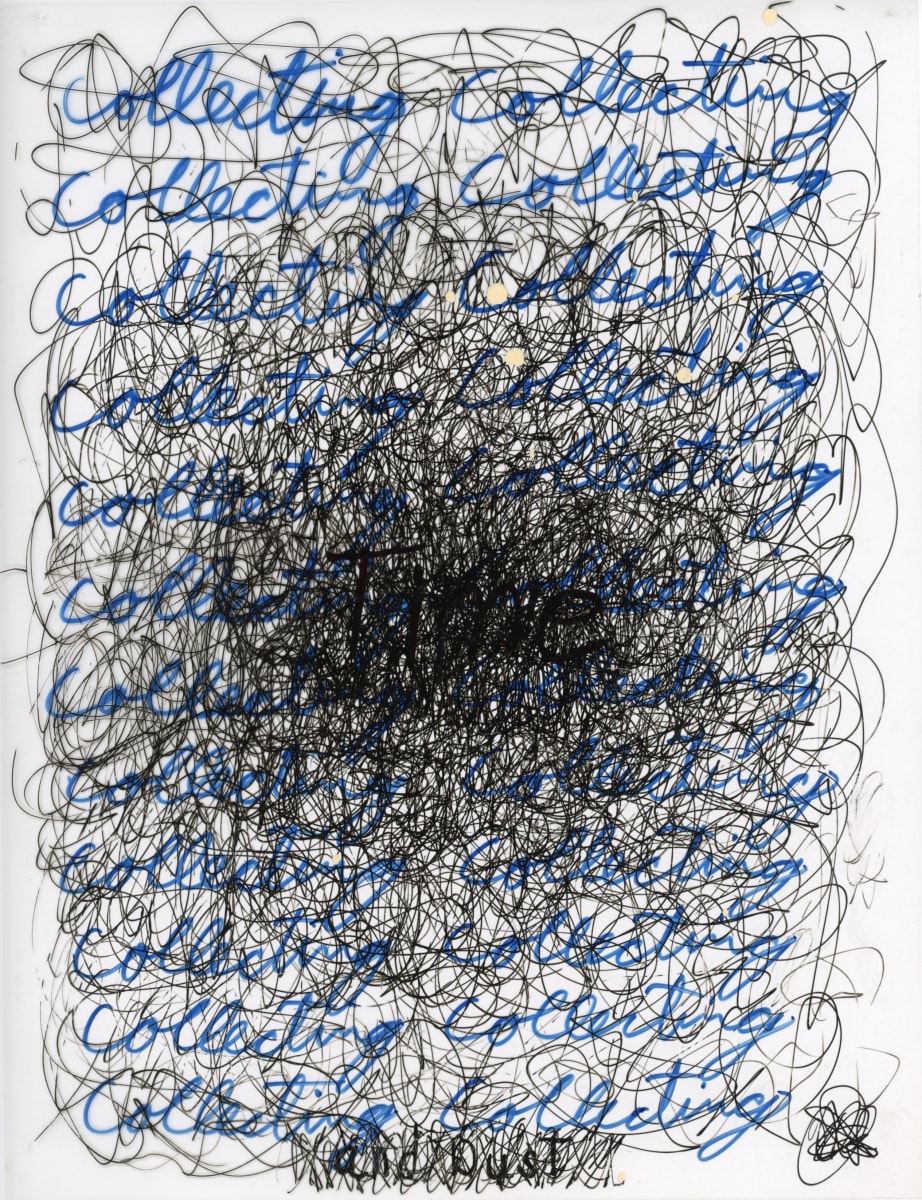 Collecting Collecting
Collecting Collecting
Collecting Collecting
Collecting Collecting
Collecting Collecting
Collecting Collecting
Time
Collecting Collecting
Collecting Collecting
Collecting Collecting
Collecting Collecting
Collecting Collecting
Collecting Collecting
and Dust